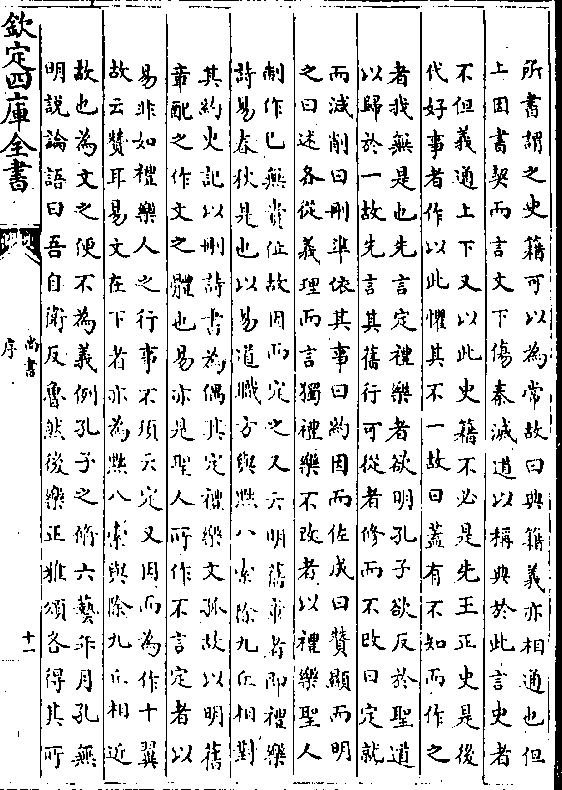 所書謂之史籍可以為常故曰典籍義亦相通也但
上因書契而言文下傷秦滅道以稱典於此言史者
不但義通上下又以此史籍不必是先王正史是後
代好事者作以此懼其不一故曰蓋有不知而作之
者我無是也先言定禮樂者欲明孔子欲反於聖道
以歸於一故先言其舊行可從者修而不改曰定就
而減削曰刪準依其事曰約因而佐成曰贊顯而明
之曰述各從義理而言獨禮樂不改者以禮樂聖人
制作已無貴位故因而定之又云明舊章者即禮樂
詩易春秋是也以易道職方與黜八索除九丘相對
其約史記以刪詩書為偶其定禮樂文孤故以明舊
章配之作文之體也易亦是聖人所作不言定者以
易非如禮樂人之行事不須云定又因而為作十翼
故云贊耳易文在下者亦為黜八索與除九丘相近
故也為文之便不為義例孔子之脩六藝年月孔無
明說論語曰吾自衛反魯然後樂正雅頌各得其所
欽定四庫全書
尚書
序
十一